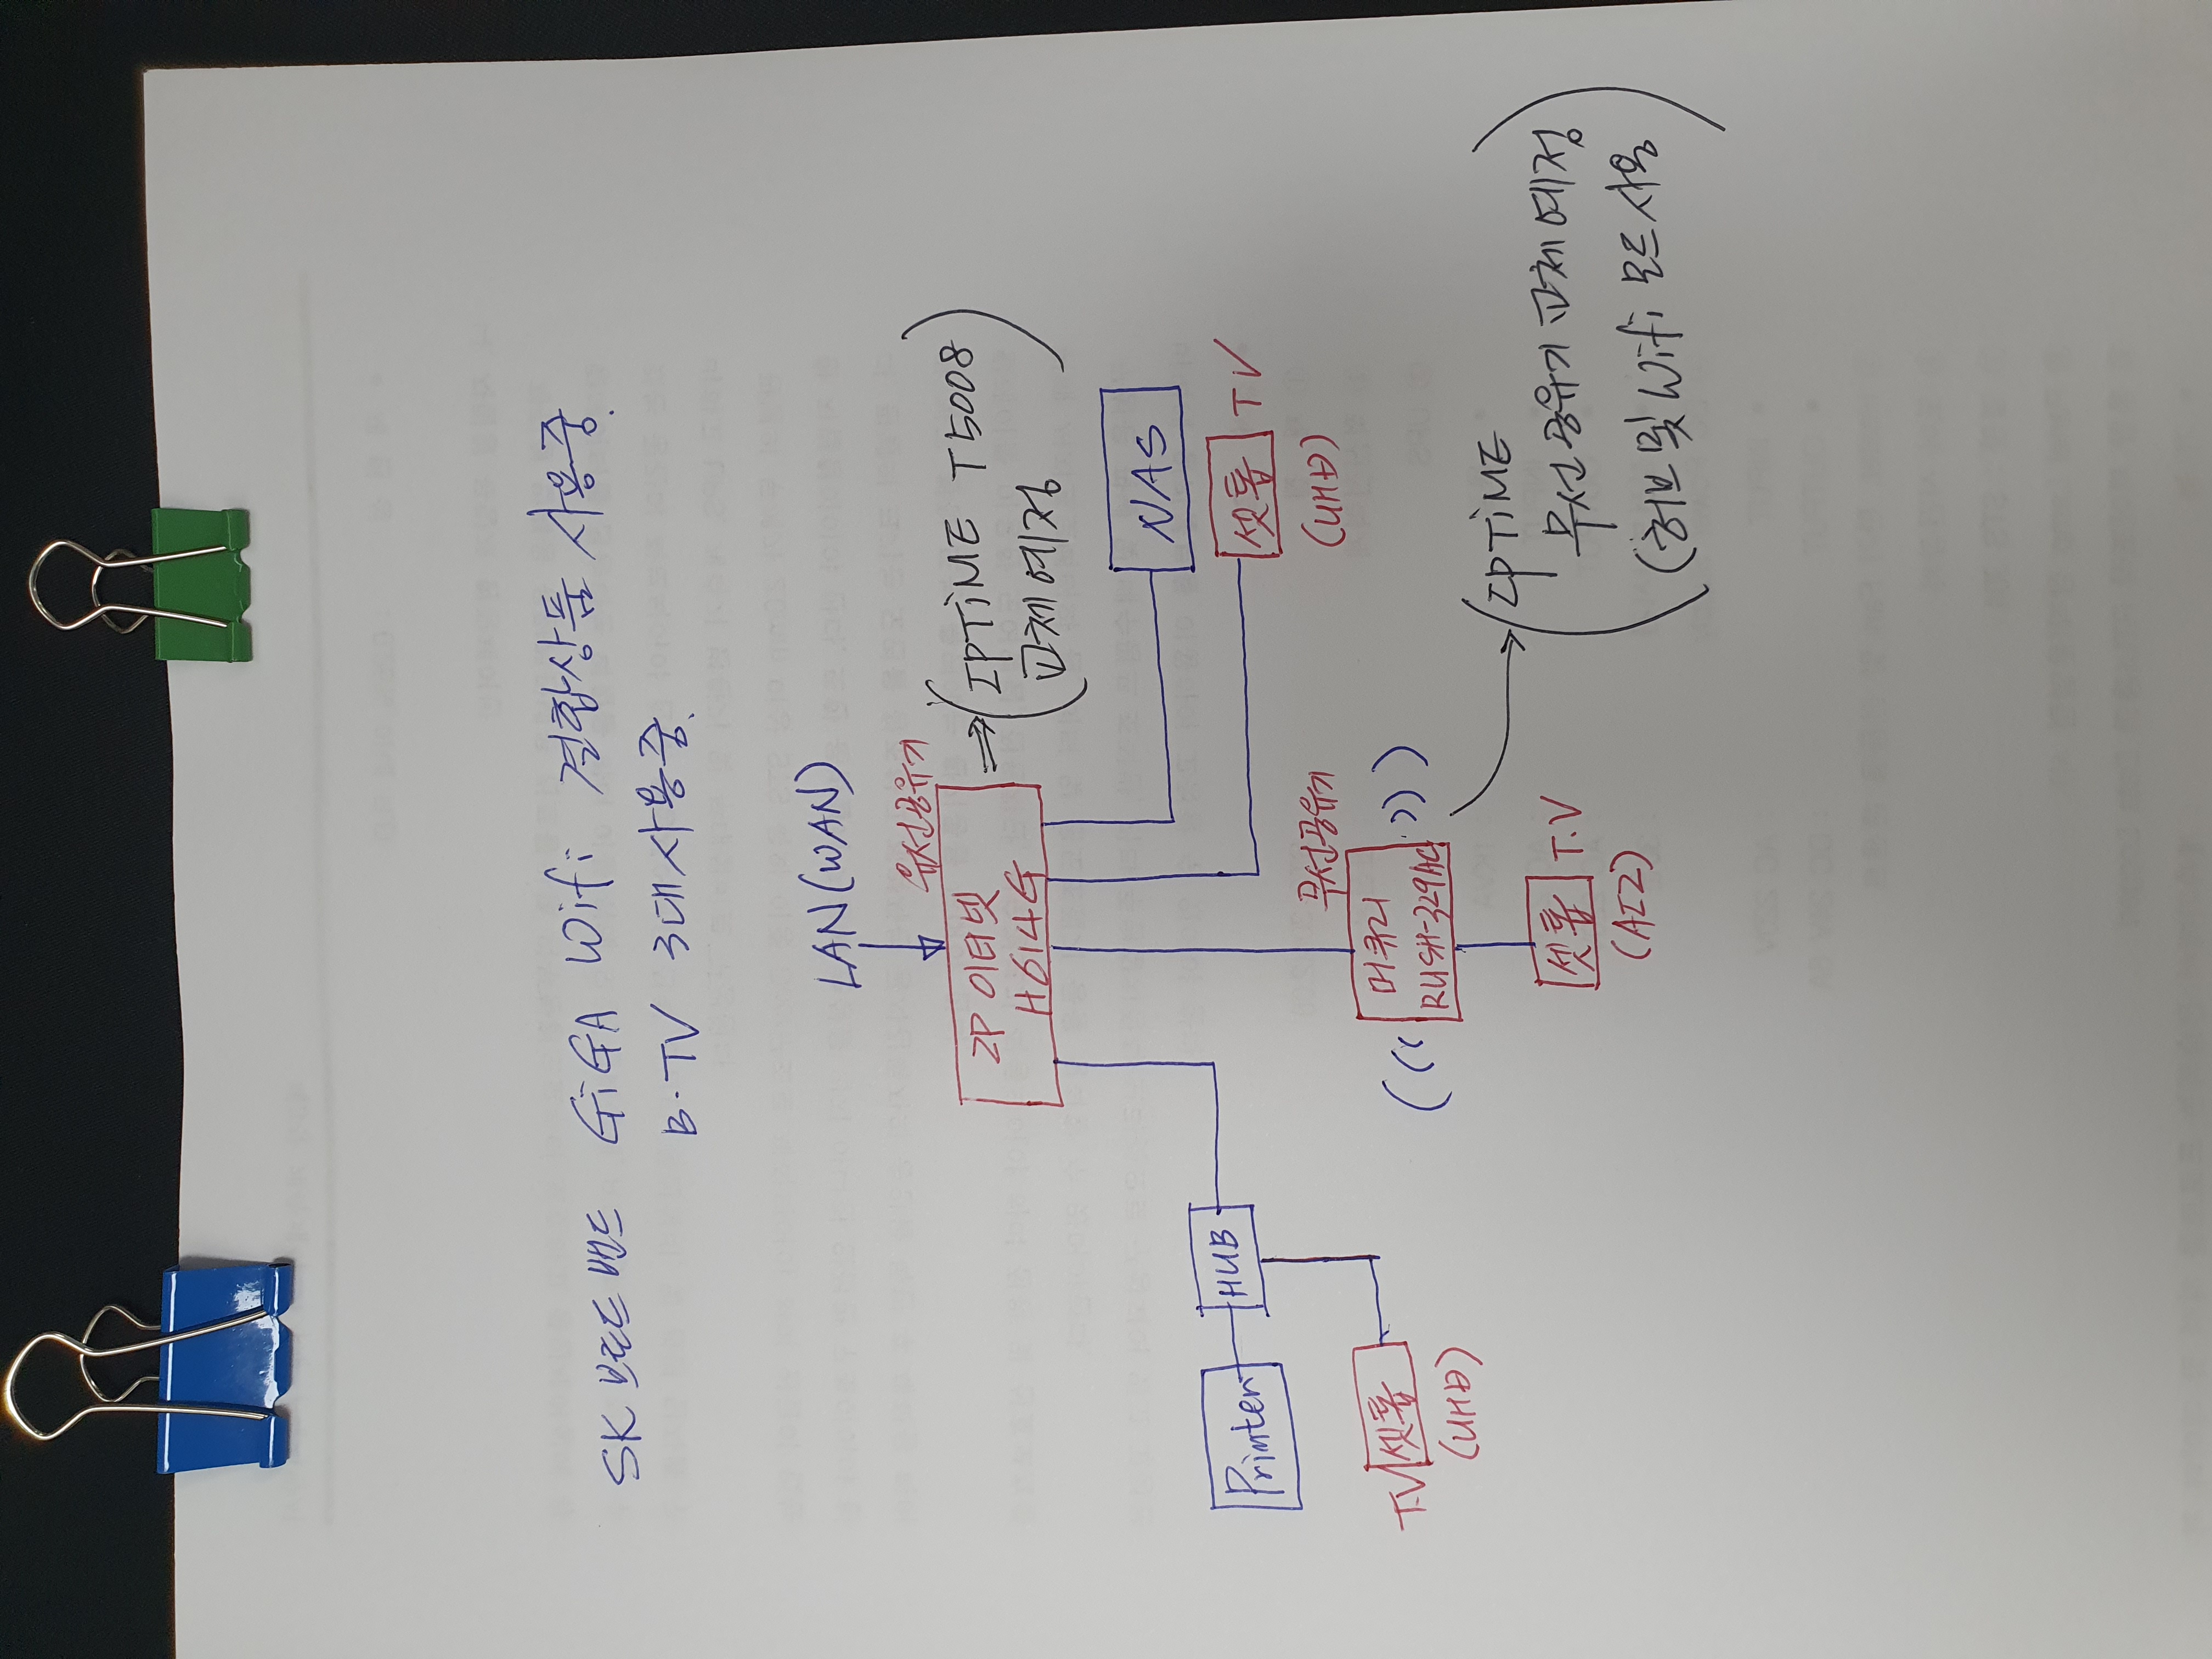 SK 브로드 밴드 GiGA Wifi 결합상품 사용중.
B·TV 3대 사용중.
LAN(WAN)
유선공유기
IP 이터넷
H614G
⇒ (IPTiME T5008
교체예정)
NAS
셋톱 TV
(UHD)
무선공유기
머큐리
((( )))
(IPTiME
무선공유기 교체예정
(허브 및 Wifi 모드 사용)
HUB
Printer
T.V 셋톱
(UHD)
셋톱 T.V
(AI2)